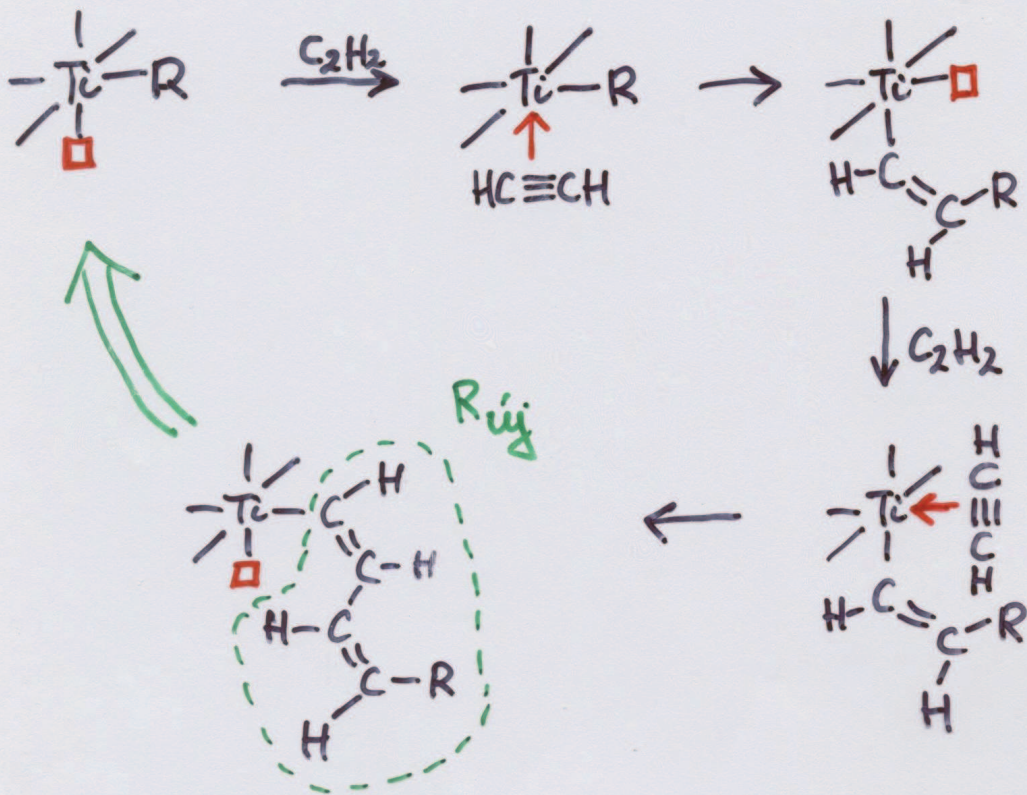 Ti—R
C₂H₂
Ti—R
HC≡CH
Ti
H-C
C-R
H
C₂H₂
R új
Ti
H
C
|||
C
H
H-C
C-R
H
Ti—C
H
C-H
H-C
C-R
H